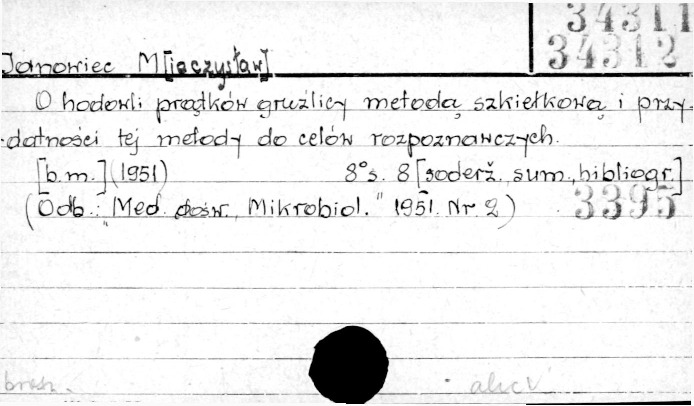 34311
34312
Janowiec M[ieczysław]
O hodowli prątków gruźlicy metodą szkiełkową i przy-
datności tej metody do celów rozpoznawczych.
[b.m.] (1951) 8° s. 8 [soderž. sum., bibliogr.]
(Odb.: "Med. dośw., Mikrobiol." 1951. Nr. 2) 3395
brosz.